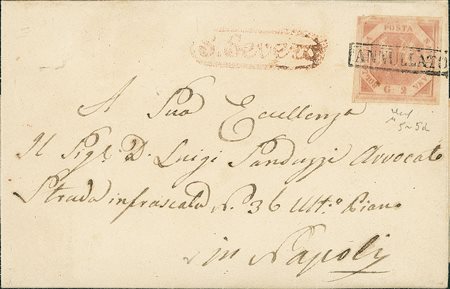 S. Severo
POSTA
ANNULLATO
G 2
A Sua Eccellenza
Il Sigr. D. Luigi Sanduzzi Avvocato
Strada infrascata N. 36 Ult.o Piano
in Napoli